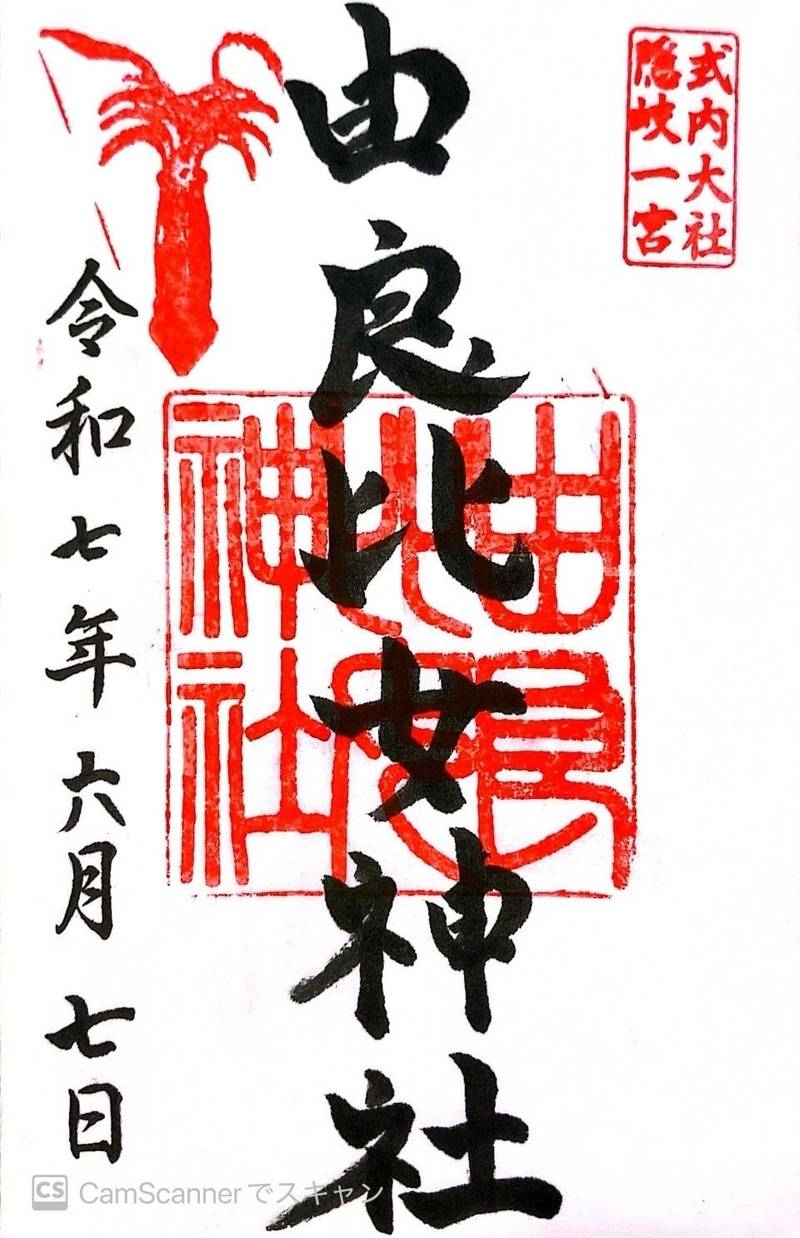 式内大社
隠岐一宮
由良比女神社
由良比女神社
令和七年六月七日
CS CamScannerでスキャン